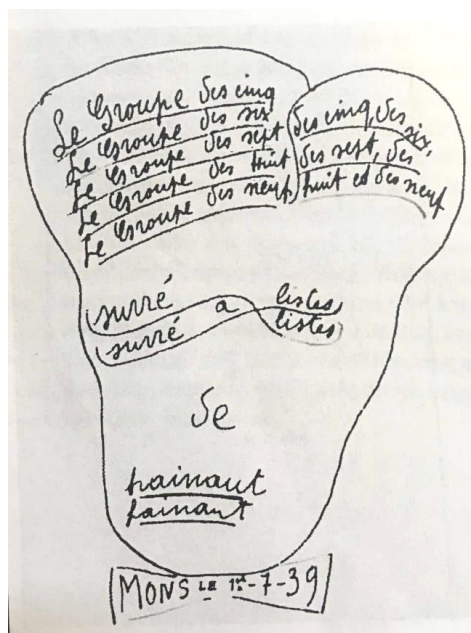 Le Groupe des cinq
Le Groupe des six
Le Groupe des sept
Le Groupe des huit
Le Groupe des neuf,
des cinq, des six,
des sept, des
huit et des neuf
surré a listes
surré listes
de
hainaut
fainaut
MONS LE 1er-7-39